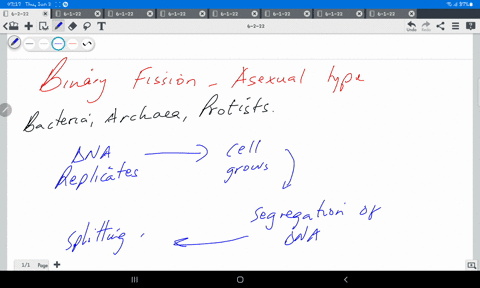 07:17 Thu, Jan 3
6-2-22 6-1-22 6-1-22 6-1-22 6-1-22 6-1-22 6-1-22 6-1-22
T 6-2-22 Undo Redo
Binary Fission - Asexual type
Bacteria, Archaea, Protists.
DNA Replicates
cell grows
segregation of DNA
splitting.
1/1 Page